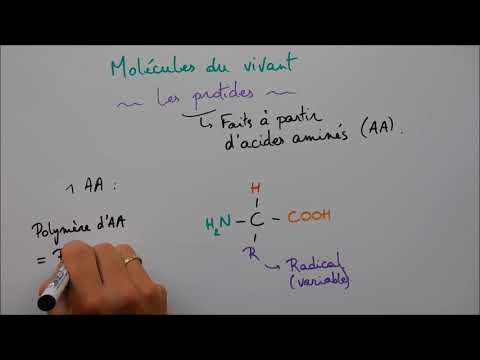 Molécules du vivant
~ Les protides ~
↳ Faits à partir
d'acides aminés (AA).
1 AA :
H
H₂N - C - COOH
R
↳ Radical
(variable)
Polymère d'AA
=